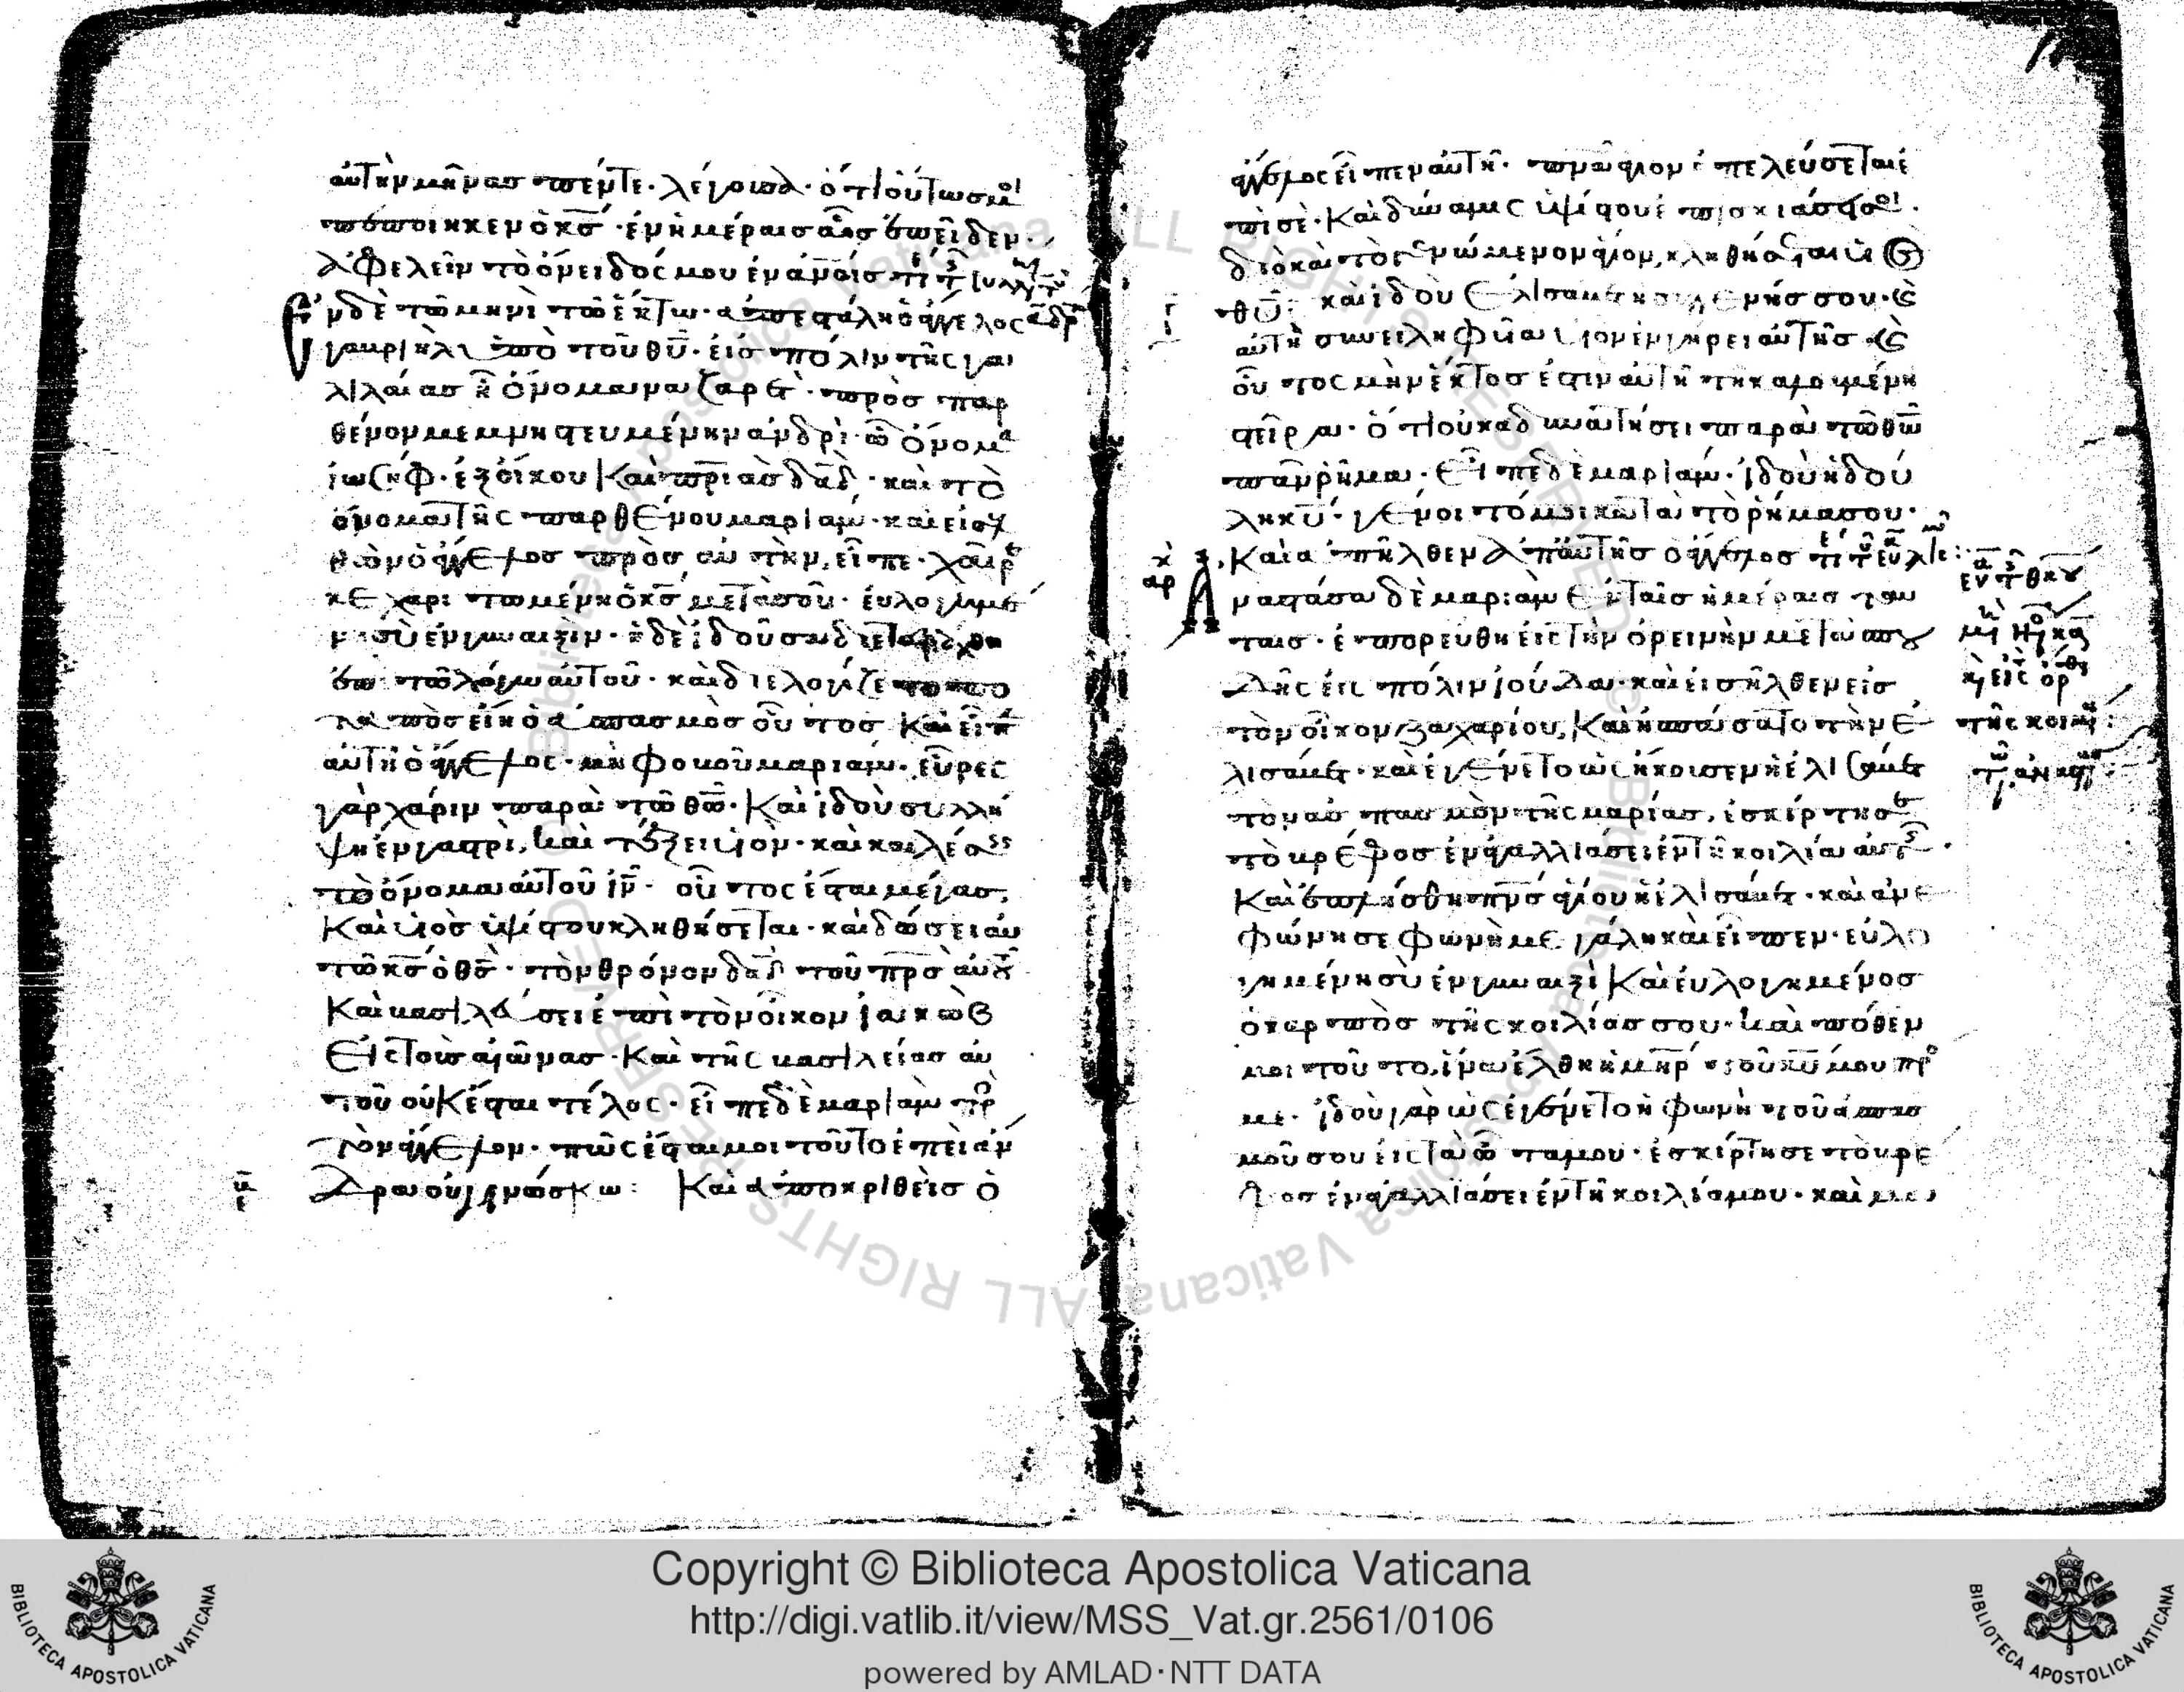 αὐτὴν μῆνας πέντε· λέγουσα· ὅτι οὕτως μοι
πεποίηκεν ὁ κ̅ς̅· ἐν ἡμέραις αἷς ἐπεῖδεν
ἀφελεῖν τὸ ὄνειδός μου ἐν ἀν̅οις
ἐν δὲ τῶ μηνὶ τῶ ἕκτω· ἀπεστάλη ὁ ἄγγελος
γαυριὴλ ὑπὸ τοῦ θ̅υ̅· εἰς πόλιν τῆς γα
λιλαίας ἧ ὄνομα ναζαρὲτ· πρὸς παρ
θένον μεμνηστευμένην ἀνδρὶ· ὧ ὄνομα
ἰωσὴφ· ἐξ οἴκου καὶ πριᾶς δα̅δ̅· καὶ τὸ
ὄνομα τῆς παρθένου μαριάμ· καὶ εἰσελ
θὼν ὁ ἄγγελος πρὸς αὐτὴν, εἶπε· χαῖρε
κεχαριτωμένη ὁ κ̅ς̅ μετὰ σοῦ· εὐλογημέ
νη σὺ ἐν γυναιξὶν· ἡ δὲ ἰδοῦσα διεταράχθη
ἐπὶ τῶ λόγω αὐτοῦ· καὶ διελογίζετο πο
ταπὸς εἴη ὁ ἀσπασμὸς οὗτος καὶ εἶπεν
αὐτῆ ὁ ἄγγελος· μὴ φοβοῦ μαριάμ· εὗρες
γὰρ χάριν παρὰ τῶ θ̅ω̅· καὶ ἰδοὺ συλλή
ψη ἐν γαστρὶ, καὶ τέξει υἱὸν· καὶ καλέσεις
τὸ ὄνομα αὐτοῦ ι̅ν̅· οὗτος ἔσται μέγας,
καὶ υἱὸς ὑψίστου κληθήσεται· καὶ δώσει αὐ
τῶ κ̅ς̅ ὁ θ̅ς̅· τὸν θρόνον δα̅δ̅ τοῦ π̅ρ̅ς̅ αὐτοῦ
καὶ βασιλεύσει ἐπὶ τὸν οἶκον ἰακὼβ
εἰς τοὺς αἰῶνας· καὶ τῆς βασιλείας αὐ
τοῦ οὐκ ἔσται τέλος· εἶπε δὲ μαριὰμ πρὸς
τὸν ἄγγελον· πῶς ἔσται μοι τοῦτο ἐπεὶ ἄν
δρα οὐ γινώσκω: καὶ ἀποκριθεὶς ὁ
ἄγγελος εἶπεν αὐτῆ· πν̅α ἅγιον ἐπελεύσεται ἐ
πὶ σὲ· καὶ δύναμις ὑψίστου ἐπισκιάσει σοι·
διὸ καὶ τὸ γεννώμενον ἅγιον, κληθήσεται υἱὸς
θ̅υ̅· καὶ ἰδοὺ ἐλισάβετ ἡ συγγενής σου· καὶ
αὐτὴ συνειληφυῖα υἱὸν ἐν γήρει αὐτῆς· καὶ
οὗτος μὴν ἕκτος ἐστιν αὐτῆ τῆ καλουμένη
στεῖρα· ὅτι οὐκ ἀδυνατήσει παρὰ τῶ θ̅ω̅
πᾶν ῥῆμα· εἶπε δὲ μαριάμ· ἰδοὺ ἡ δού
λη κ̅υ̅· γένοιτό μοι κατὰ τὸ ῥῆμα σου·
καὶ ἀπῆλθεν ἀπ αὐτῆς ὁ ἄγγελος
ἀναστᾶσα δὲ μαριὰμ ἐν ταῖς ἡμέραις ταύ
ταις· ἐπορεύθη εἰς τὴν ὀρεινὴν μετὰ σπου
δῆς εἰς πόλιν ἰούδα· καὶ εἰσῆλθεν εἰς
τὸν οἶκον ζαχαρίου, καὶ ἠσπάσατο τὴν ἐ
λισάβετ· καὶ ἐγένετο ὡς ἤκουσεν ἡ ἐλισάβετ
τὸν ἀσπασμὸν τῆς μαρίας, ἐσκίρτησε
τὸ βρέφος ἐν ἀγαλλιάσει ἐν τῆ κοιλία αὐτῆς·
καὶ ἐπλήσθη πν̅ς ἁγίου ἡ ἐλισάβετ· καὶ ἀνε
φώνησε φωνῆ μεγάλη καὶ εἶπεν· εὐλο
γημένη σὺ ἐν γυναιξὶ καὶ εὐλογημένος
ὁ καρπὸς τῆς κοιλίας σου· καὶ πόθεν
μοι τοῦτο, ἵνα ἔλθη ἡ μ̅η̅ρ̅ τοῦ κ̅υ̅ μου πρὸς
με· ἰδοὺ γὰρ ὡς ἐγένετο ἡ φωνὴ τοῦ ἀσπασ
μοῦ σου εἰς τὰ ὦτα μου· ἐσκίρτησε τὸ βρέ
φος ἐν ἀγαλλιάσει ἐν τῆ κοιλία μου· καὶ μακα
Copyright © Biblioteca Apostolica Vaticana
http://digi.vatlib.it/view/MSS_Vat.gr.2561/0106
powered by AMLAD·NTT DATA
BIBLIOTECA APOSTOLICA VATICANA
BIBLIOTECA APOSTOLICA VATICANA